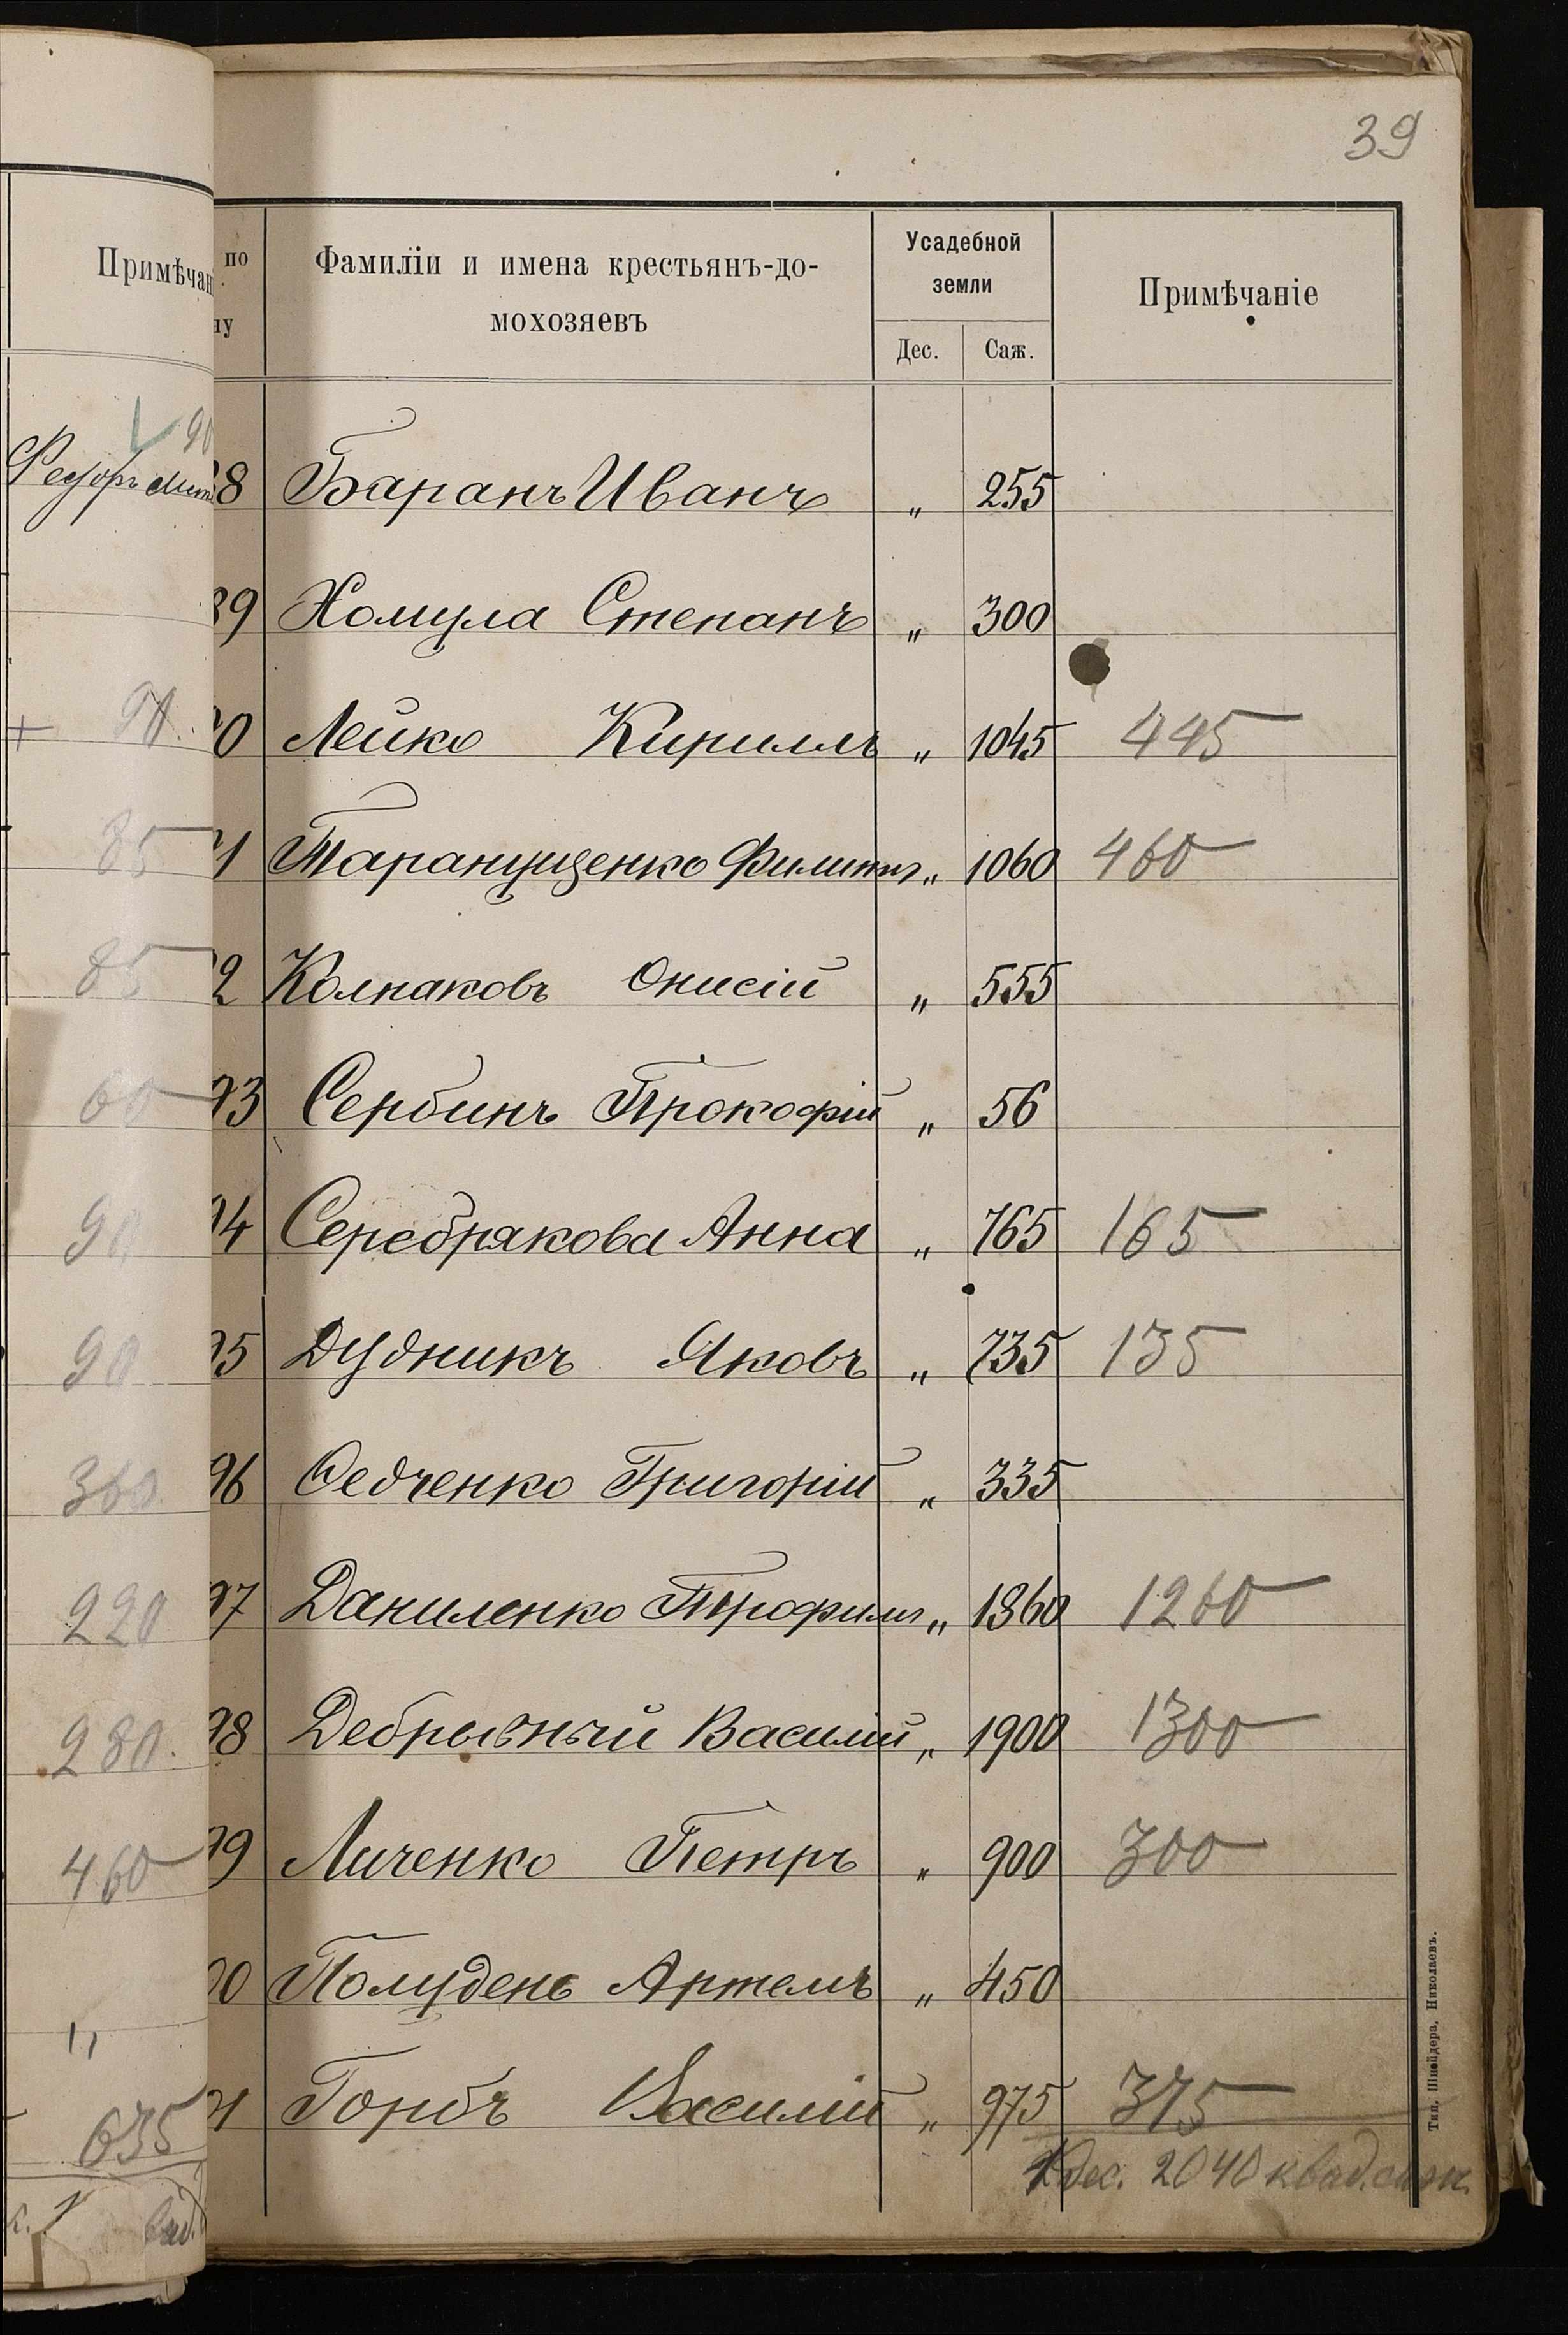 39
Примѣчан
по
ну
Фамиліи и имена крестьянъ-до-
мохозяевъ
Усадебной
земли
Дес.
Саж.
Примѣчаніе
90
Федоръ
8 Баранъ Иванъ „ 255
89 Хомула Степанъ „ 300
90 0 Лейко Кириллъ „ 1045 445
85 1 Таранущенко Филиппъ „ 1060 460
85 2 Колпаковъ Онисій „ 555
60 93 Сербинъ Прокофій „ 56
90 94 Серебрякова Анна „ 765 165
90 95 Дудникъ Яковъ „ 735 135
300 96 Федченко Григорій „ 335
220 97 Даниленко Трофимъ „ 1860 1260
280 98 Дебрывный Василій „ 1900 1300
460 99 Личенко Петръ „ 900 300
„ 00 Полудень Артемъ „ 450
635 01 Горбъ Василій „ 975 375
дес. 2040 квад. саж.
Тип. Шнейдера, Николаевъ.